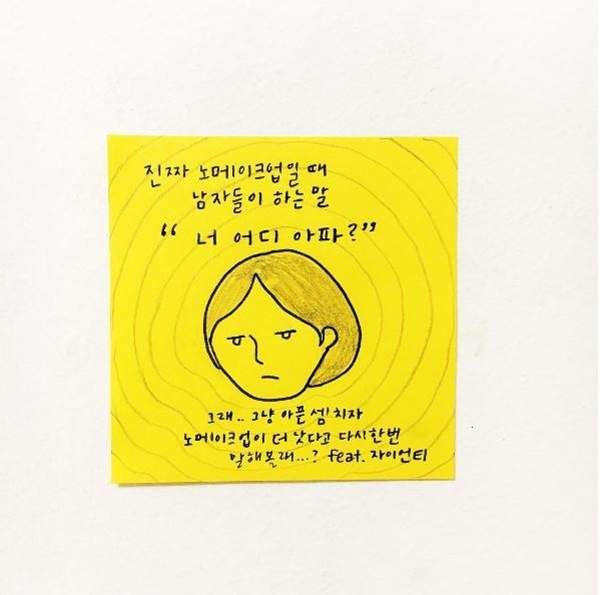 진짜 노메이크업일 때
남자들이 하는 말
“ 너 어디 아파?”
그래.. 그냥 아픈 셈 치자
노메이크업이 더 낫다고 다시한번
말해볼래...? feat. 자이언티